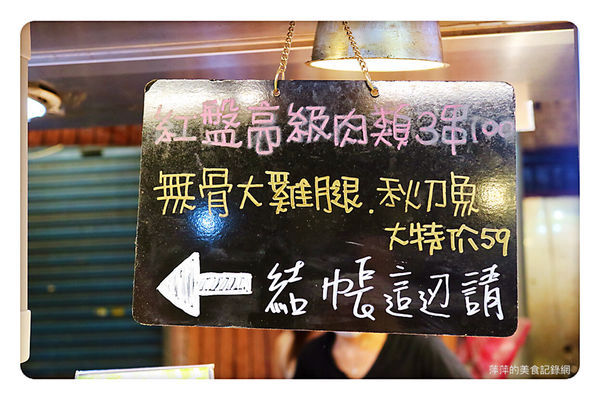 紅盤高級肉類3串100
無骨大雞腿.秋刀魚
大特价59
結帳這边請
萍萍的美食記錄網